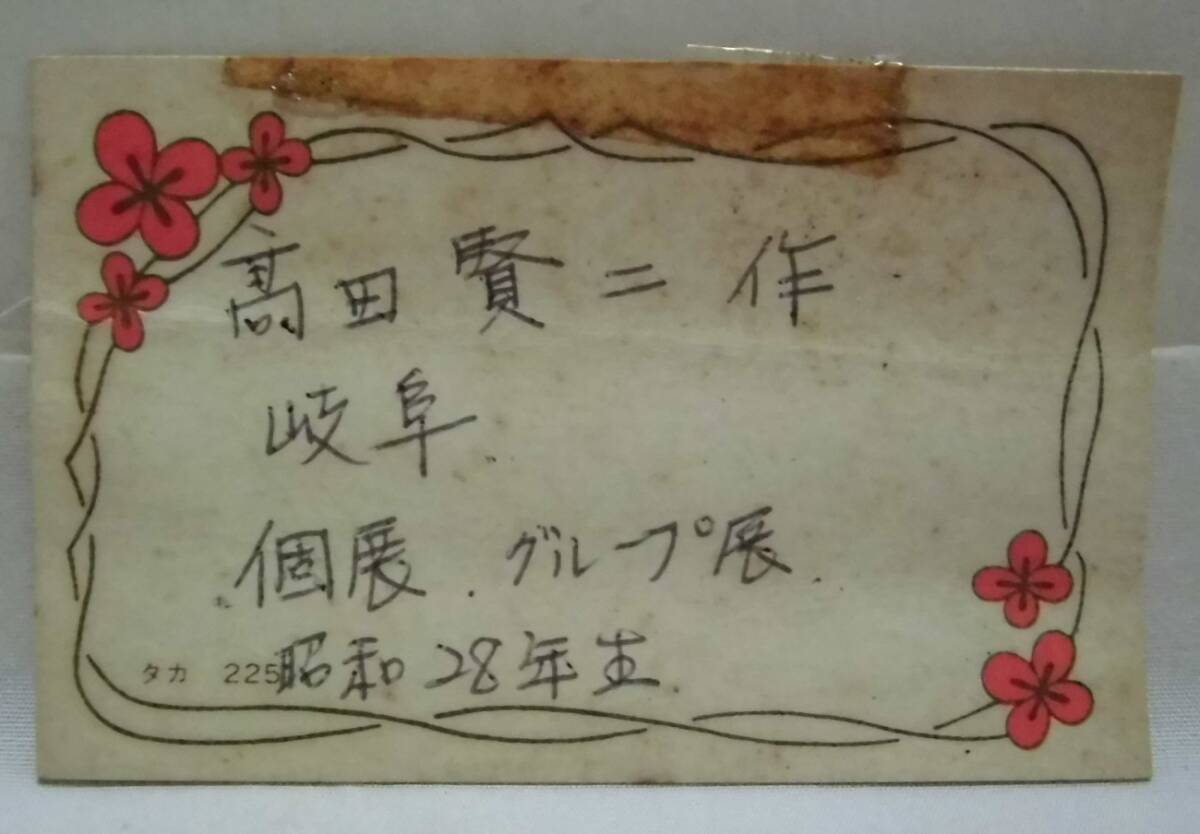 髙田賢二 作
岐阜.
個展.グループ展.
タカ 225
昭和28年生.